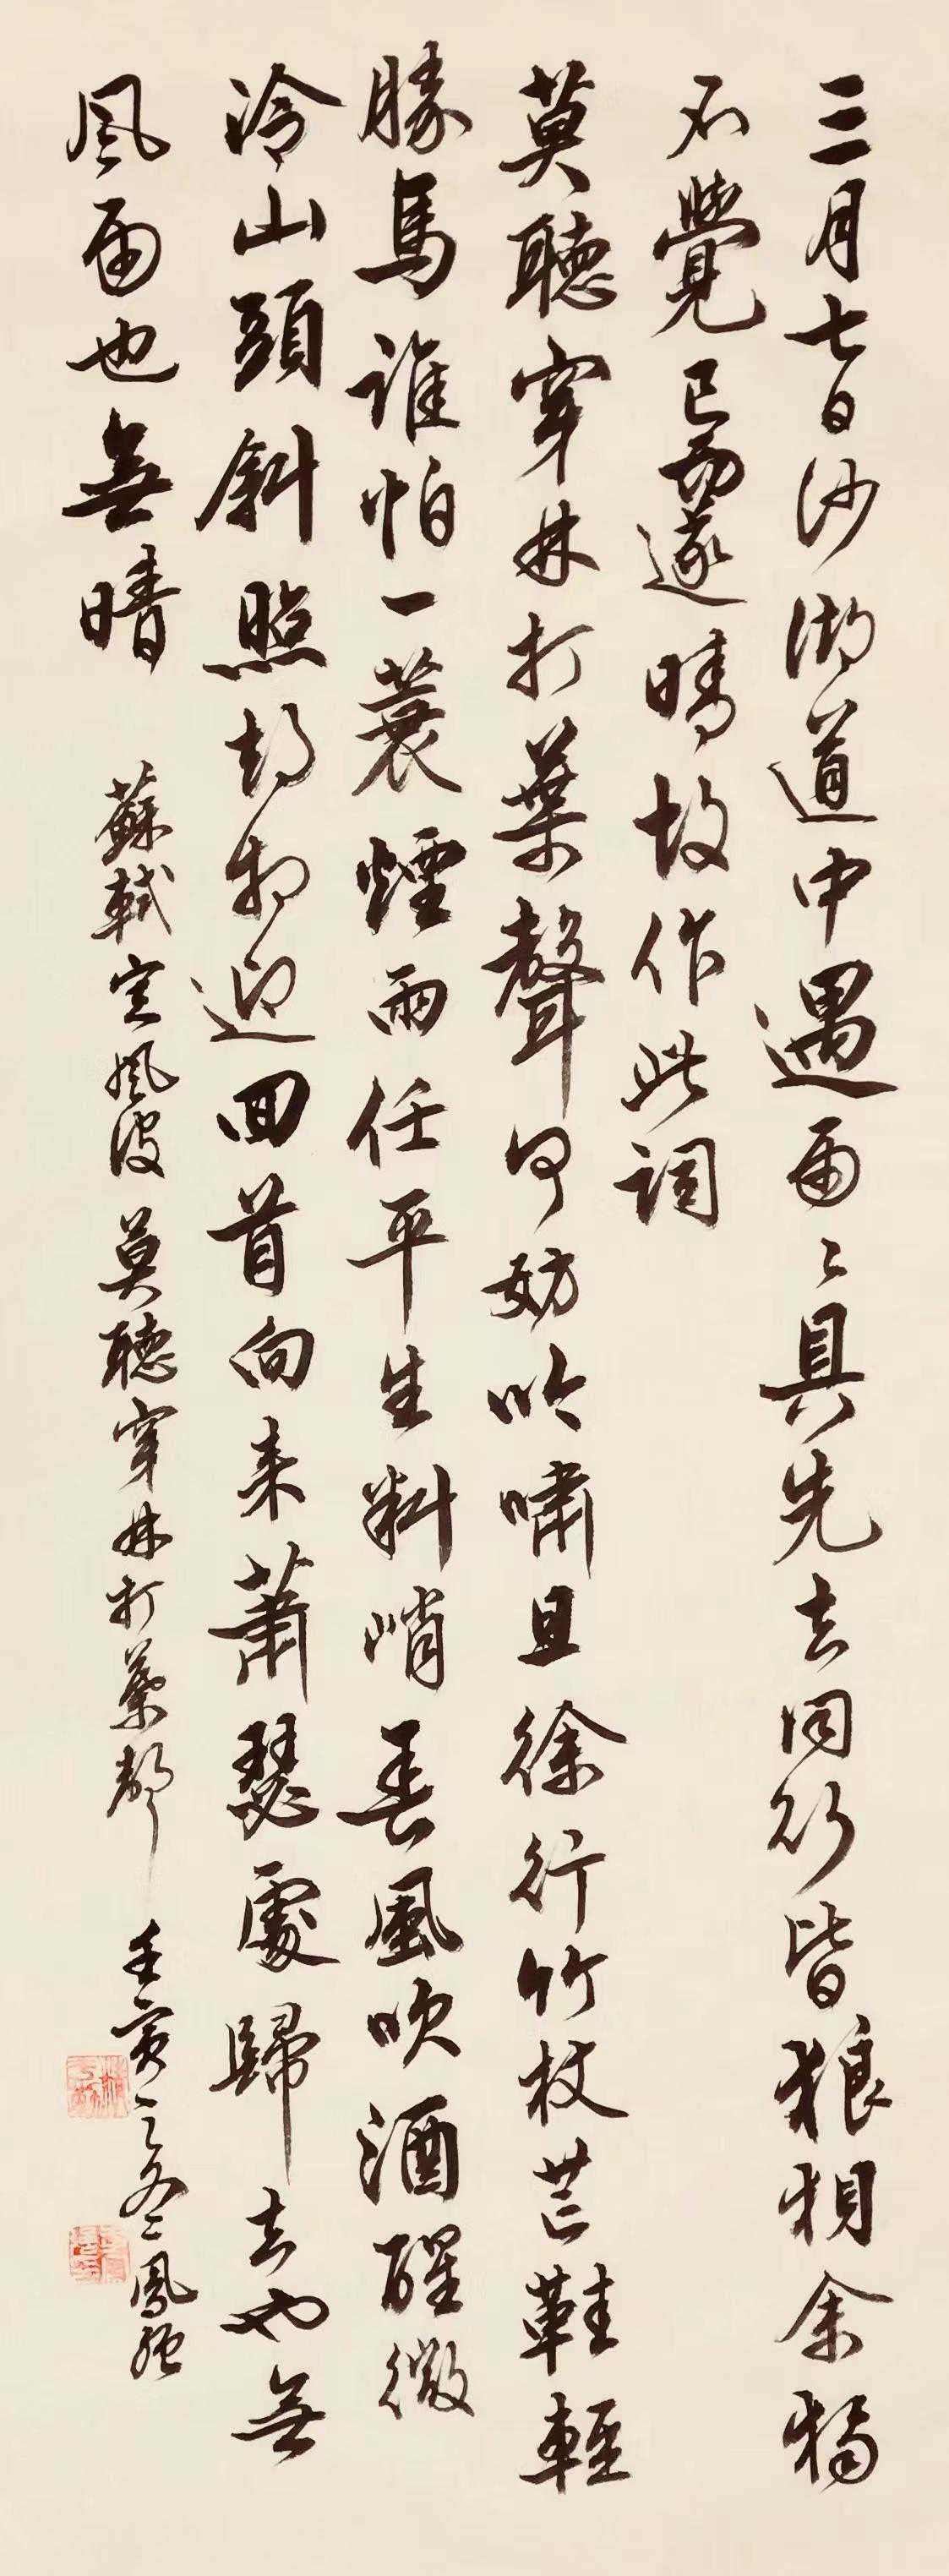 三月七日沙湖道中遇雨〻具先去同行皆狼狽余獨
不覺已而遂晴故作此詞
莫聽穿林打葉聲何妨吟嘯且徐行竹杖芒鞋輕
勝馬誰怕一蓑煙雨任平生料峭春風吹酒醒微
冷山頭斜照却相迎回首向来蕭瑟處歸去也無
風雨也無晴 蘇軾定風波 莫聽穿林打葉聲 壬寅之冬 鳳